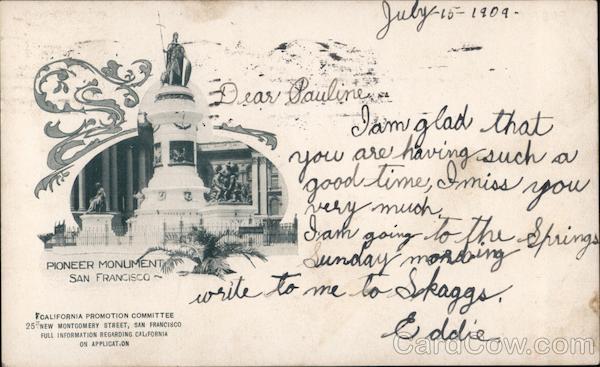 July-15-1909-
Dear Pauline
I am glad that
you are having such a
good time, I miss you
very much.
I am going to the Springs
Sunday morning
write to me to Skaggs.
Eddie
PIONEER MONUMENT
SAN FRANCISCO~
CALIFORNIA PROMOTION COMMITTEE
25 NEW MONTGOMERY STREET, SAN FRANCISCO
FULL INFORMATION REGARDING CALIFORNIA
ON APPLICATION
CardCow.com